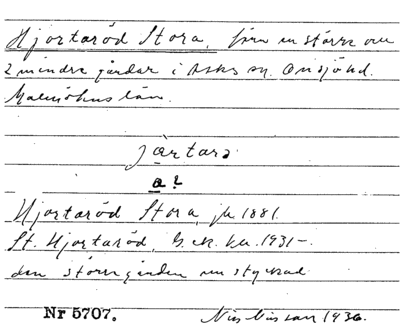 Hjortaröd Stora, förr en större och
2 mindre gårdar i Asks sn. Onsjö hd.
Malmöhus län.
järtarö
a 2
Hjortaröd Stora, jb 1881.
St. Hjortaröd, G. ek. ka. 1931-.
den större gården nu styckad
Nr 5707.
Nils Nilsson 1936.